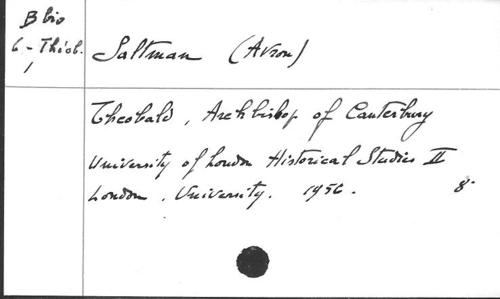 B bio
6 - Théob.
1
Saltman (Avrom)
Theobald, Archbishop of Canterbury
University of London Historical Studies II
London, University. 1956. 8°